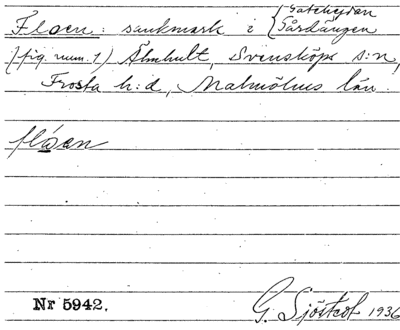 Floen: sankmark i { Gatehejdan
Gårdängen
(fig. num. 1) Älmhult, Svensköps s:n,
Frosta h:d, Malmöhus län.
flóen
Nr 5942.
G. Sjöstedt 1936